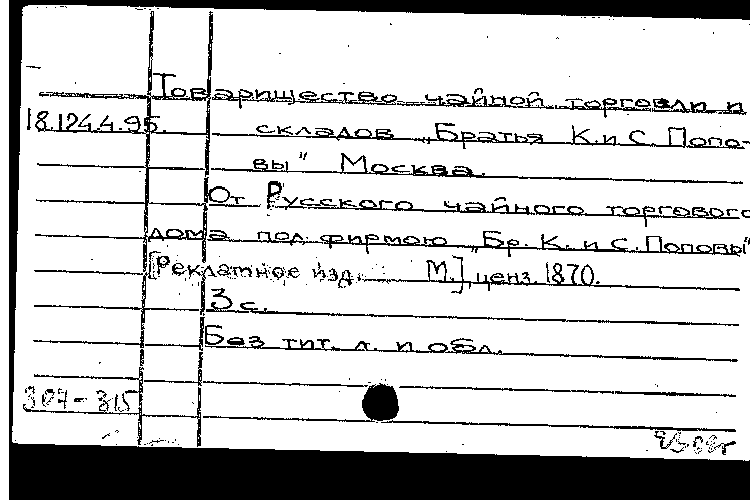 Товарищество чайной торговли и
18.124.4.95 складов „Братья К. и С. Попо-
вы" Москва.
От Русского чайного торгового
дома под фирмою „Бр. К. и С. Поповы"
[Рекламное изд. М.], ценз. 1870.
3 с.
Без тит. л. и обл.
307-315